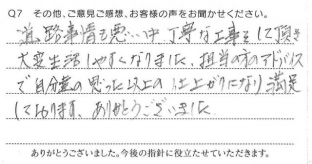 Q7 その他、ご意見ご感想、お客様の声をお聞かせください。
道路事情も悪い中 丁寧な工事をして頂き
大変生活しやすくなりました。担当の方のアドバイス
で自分達の思った以上の仕上がりになり満足
しております。ありがとうございました
ありがとうございました。今後の指針に役立たせていただきます。